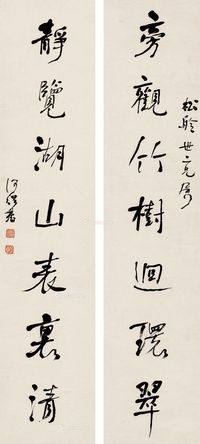 旁觀竹樹迴環翠
松舲世二兄屬
靜覽湖山表裏清
何紹基